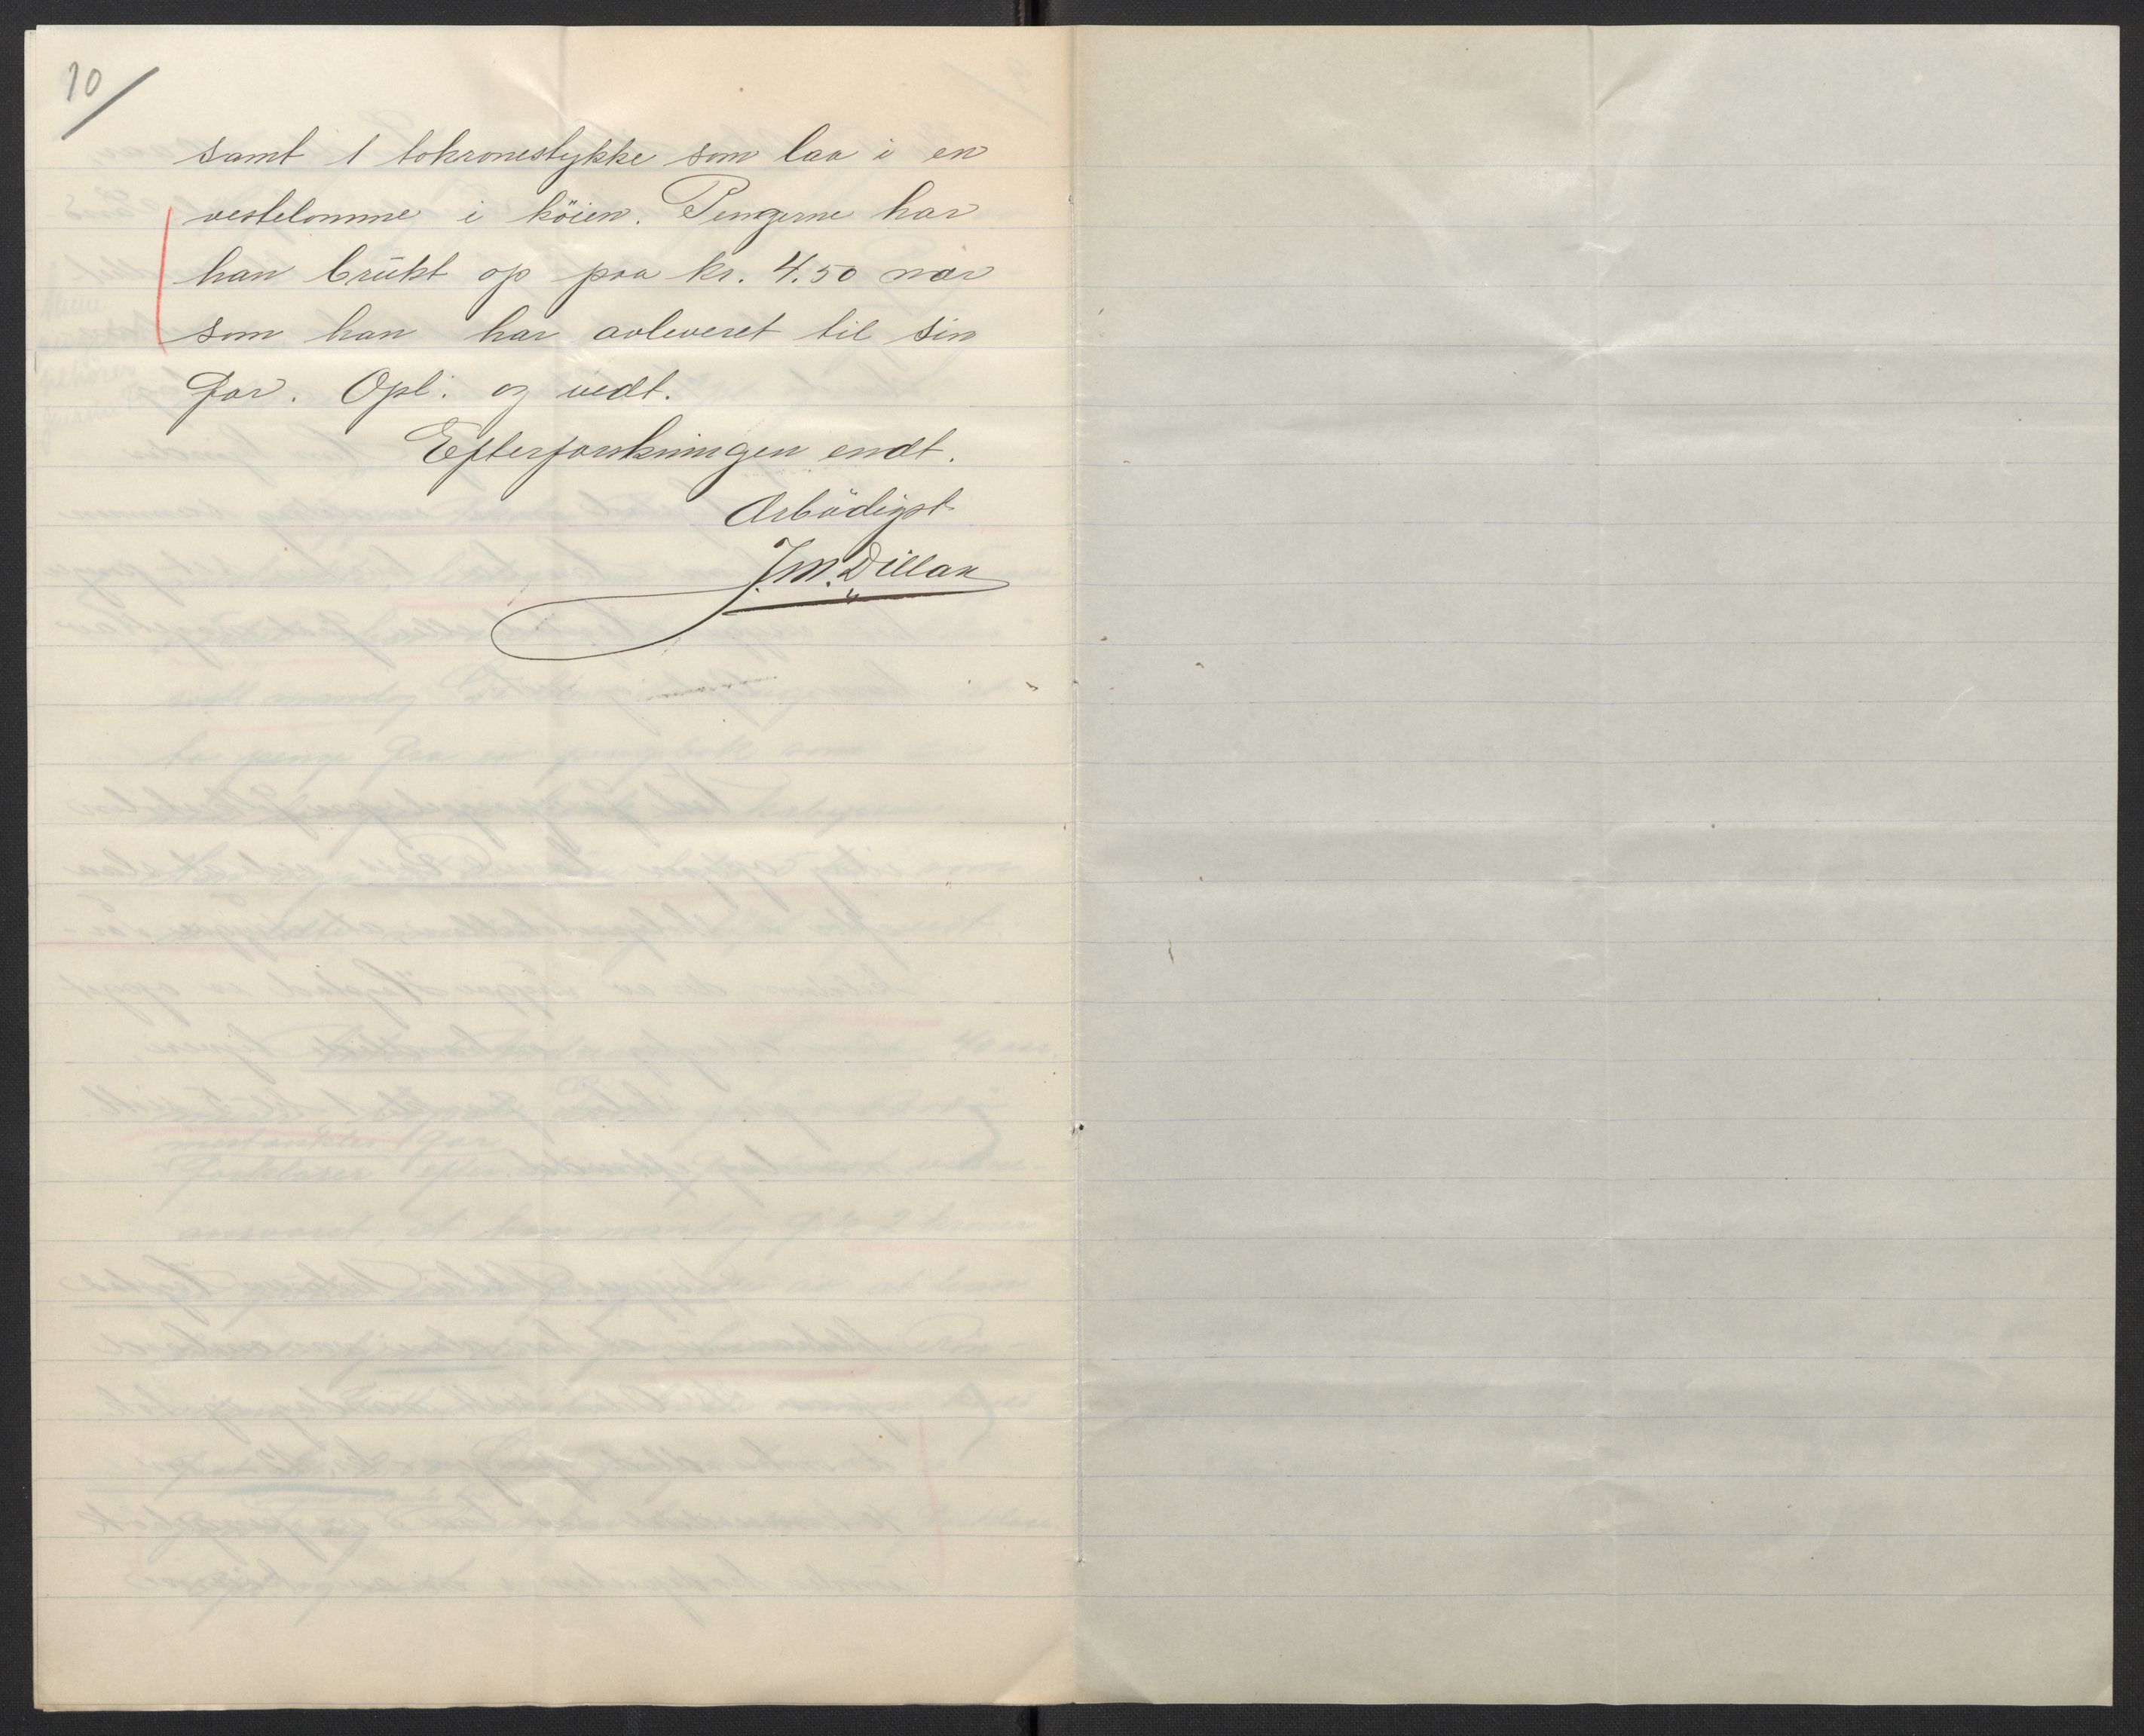 10
samt 1 tokronestykke som laa i en
vestelomme i köien. Pengerne har
han brükt op paa kr. 4.50 nær
som han har avleveret til sin
far. Opl. og vedt.
Efterforskningen endt.
Ærbödigst
J.M. Dillan